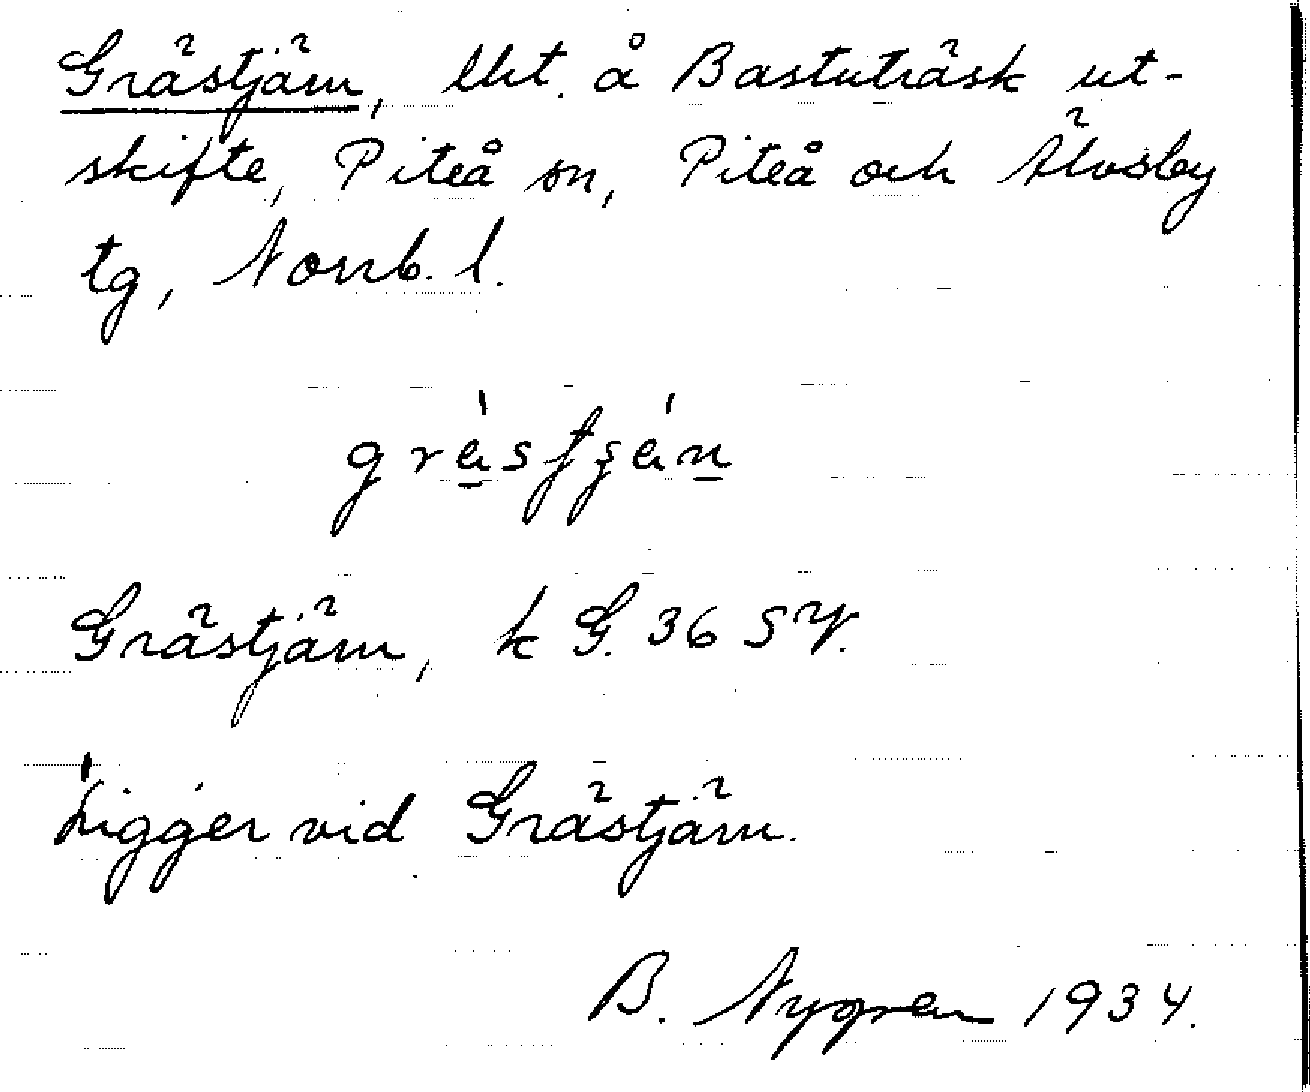 Grästjärn, lht. å Bastuträsk ut-
skifte, Piteå sn, Piteå och Älvsby
tg, Norrb. l.
Grästjärn, k G. 36 SV.
Ligger vid Grästjärn.
B. Nygren 1934.